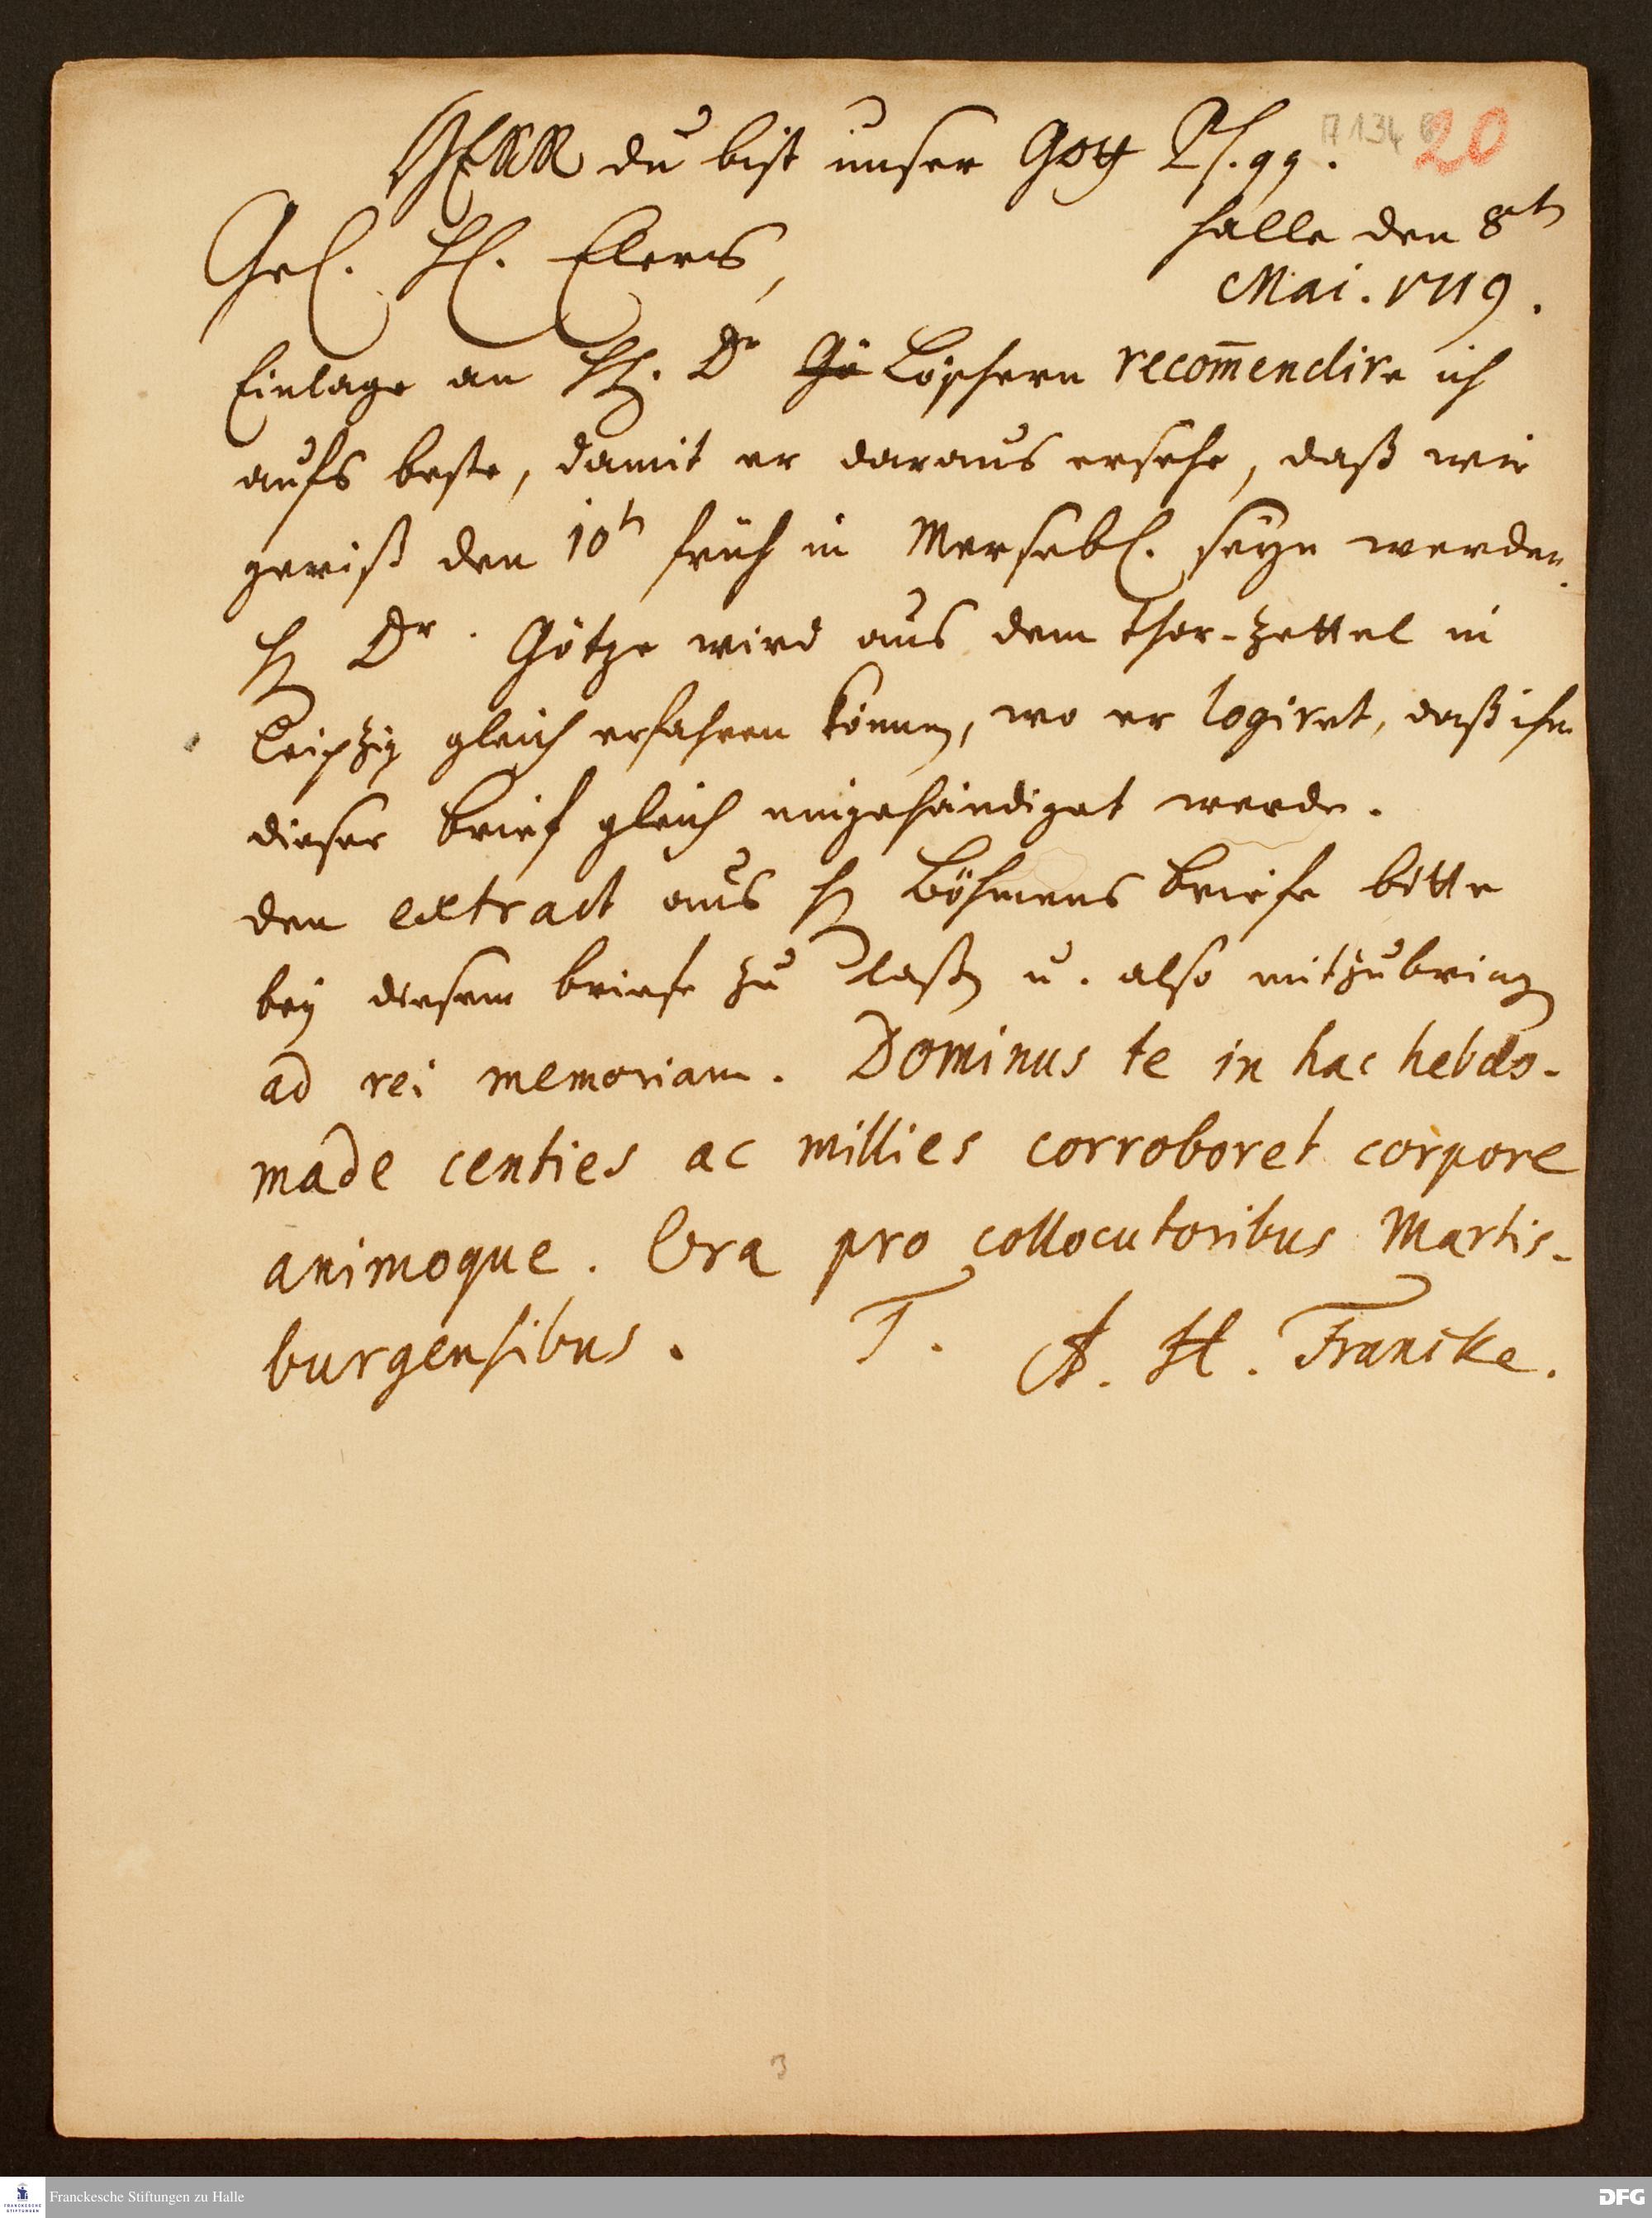 HERR du bist unser Gott Ps. 99.
A 134 20
Halle den 8t.
Gel. H. Elers,
Mai. 1719.
Einlage an H. Dr Gö Löschern recom̄endire ich
aufs beste, damit er daraus ersehe, daß wir
gewiß den 10t früh in Mersebl. seyn werden.
H Dr. Götze wird aus dem Thor-Zettel in
Leipzig gleich erfahren können, wo er logiret, daß ihm
dieser Brief gleich eingehändiget werde.
den extract aus H Böhmens Briefe bitte
bey diesem briefe zu laßen u. also mitzubringen
ad rei memoriam. Dominus te in hac hebdo-
made centies ac millies corroboret corpore
animoque. Ora pro collocutoribus Martis-
burgensibus. T. A. H. Francke.
3
FRANCKESCHE STIFTUNGEN
Franckesche Stiftungen zu Halle
DFG